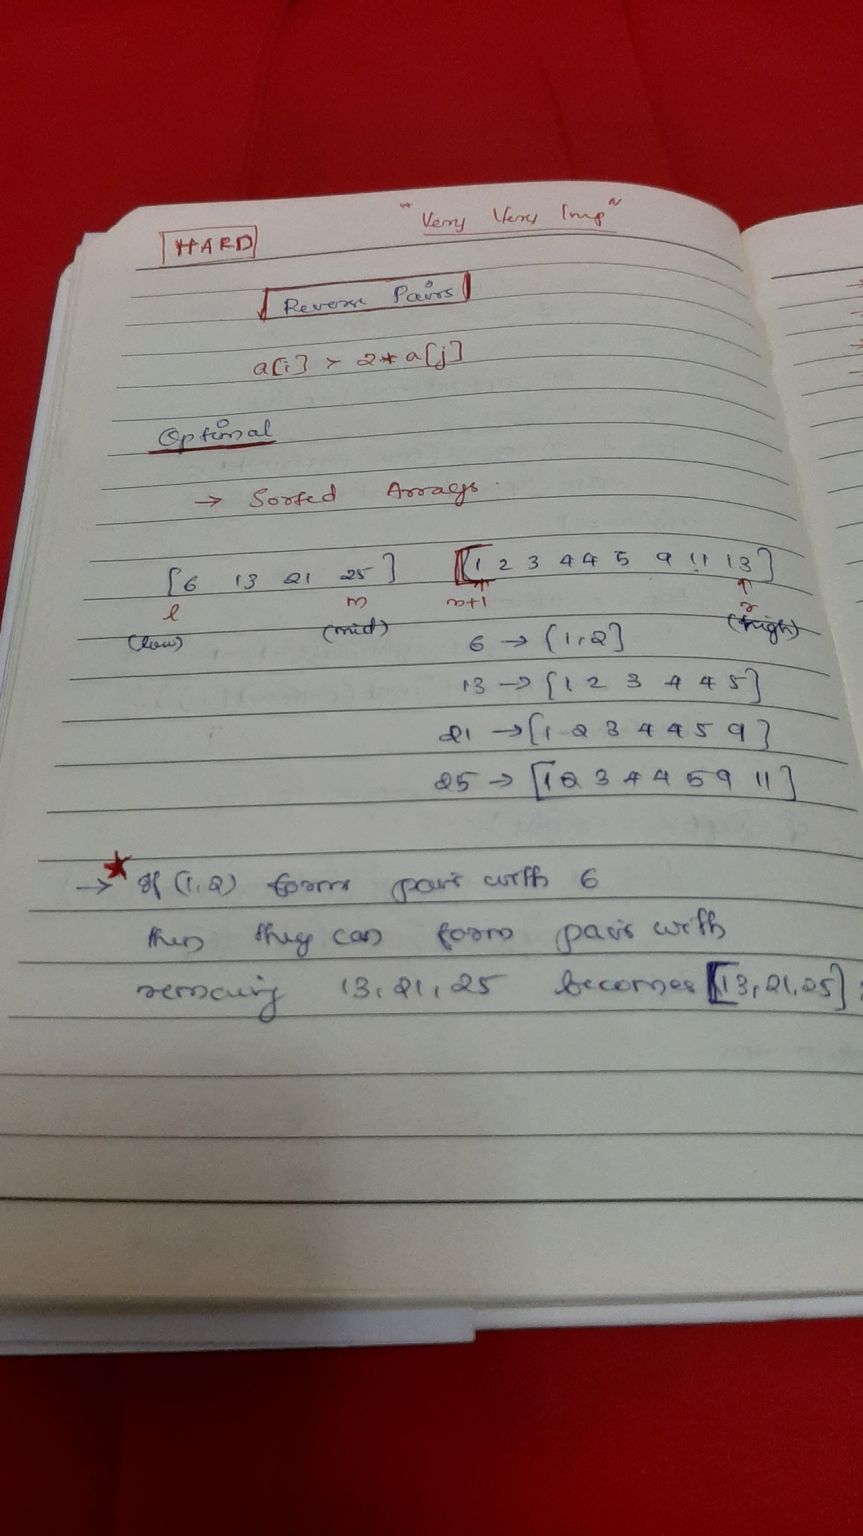 "Very Very Imp"
HARD
Reverse Pairs
a[i] > 2* a[j]
Optimal
→ Sorted Arrays.
[6 13 21 25] [1 2 3 4 4 5 9 11 13]
l m m+1 r
(low) (mid) (high)
6 → [1,2]
13 → [1 2 3 4 4 5]
21 → [1 2 3 4 4 5 9]
25 → [1 2 3 4 4 5 9 11]
→ ★ If (1,2) forms pair with 6
then they can form pair with
remaing 13, 21, 25 becomes [13,21,25]